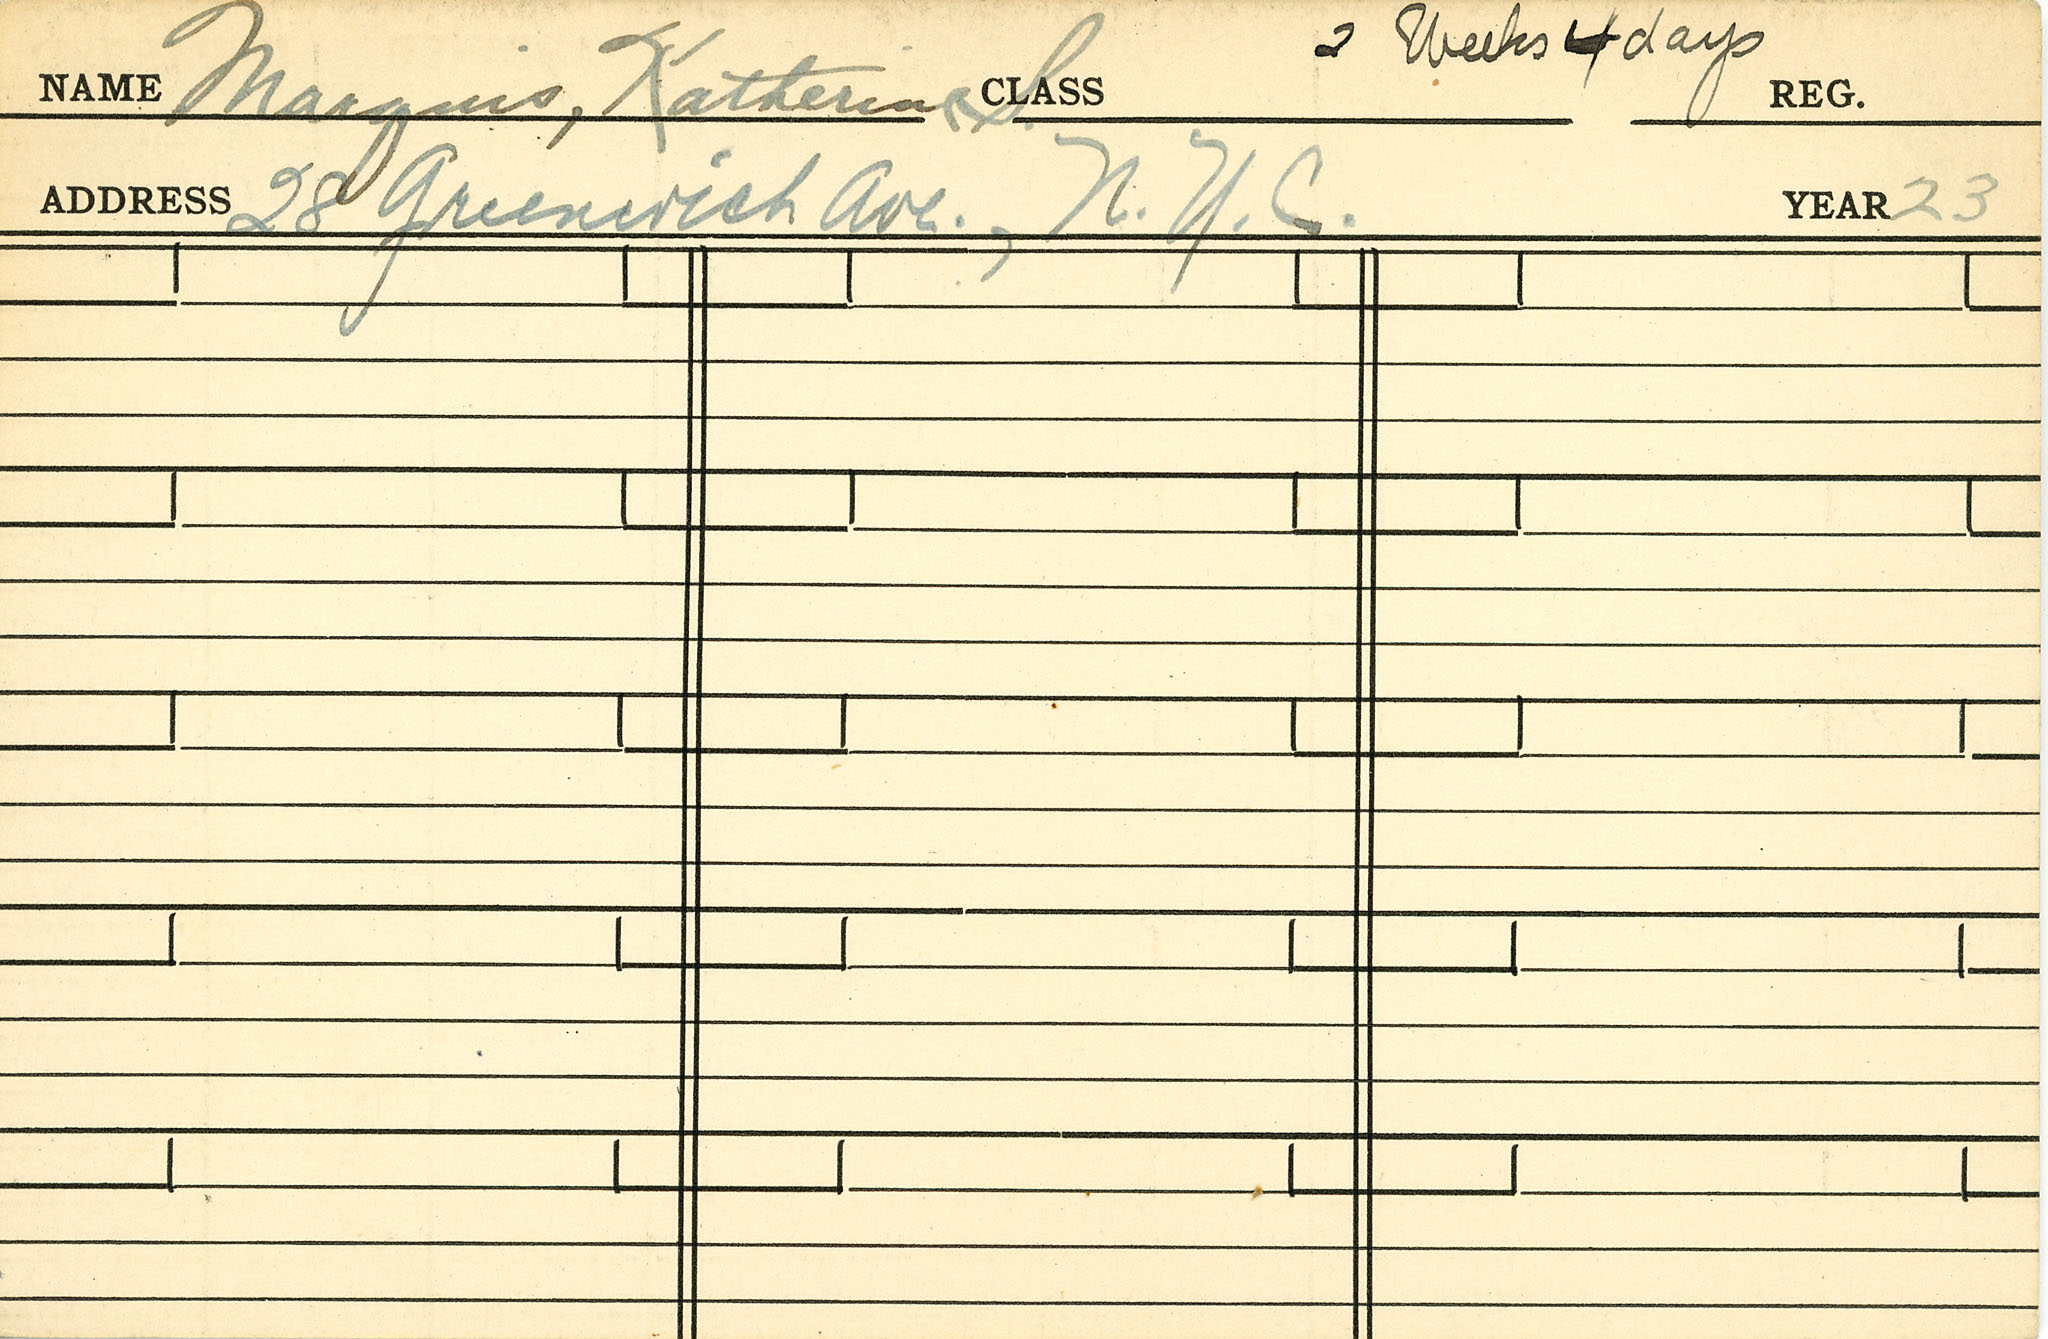 NAME Marquis, Katherine S. CLASS 2 Weeks 4 days REG.
ADDRESS 28 Greenwich Ave., N.Y.C. YEAR 23